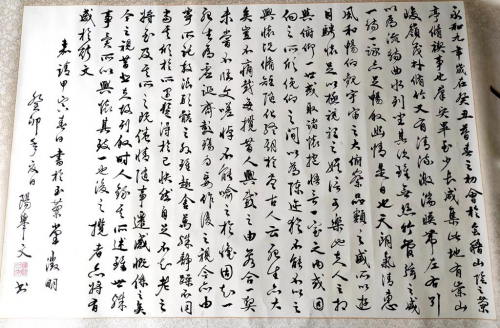 永和九年歲在癸丑暮春之初會於會稽山陰之蘭
亭脩禊事也群賢畢至少長咸集此地有崇山
峻嶺茂林脩竹又有清流激湍映帶左右引
以為流觴曲水列坐其次雖無絲竹管弦之盛
一觴一詠亦足暢敘幽情是日也天朗氣清惠
風和暢仰觀宇宙之大俯察品類之盛所以遊
目騁懷足以極視聽之娛信可樂也夫人之相
與俯仰一世或取諸懷抱悟言一室之內或因
向之所欣俛仰之間以為陳迹猶不能不以之
興懷況脩短隨化終期於盡古人云死生亦大
矣豈不痛哉每攬昔人興感之由若合一契
未嘗不臨文嗟悼不能喻之於懷固知一
死生為虛誕齊彭殤為妄作後之視今亦由
寄所託放浪形骸之外雖趣舍萬殊靜躁不同
當其欣於所遇暫得於己快然自足不知老之
將至及其所之既惓情隨事遷感慨係之矣
今之視昔悲夫故列敘時人錄其所述雖世殊
事異所以興懷其致一也後之攬者亦將有
感於斯文
嘉靖甲寅春日書於玉蘭堂徵明
癸卯年夏日
陽文書